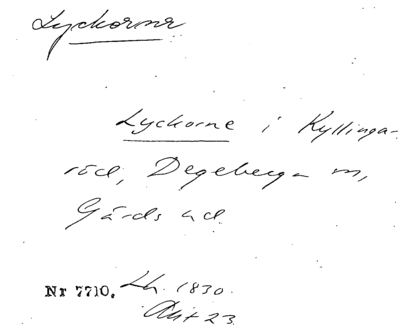 Lyckorna
Lyckorne i Kyllinga-
röd, Degeberga m,
Gärds hd.
Nr 7710. Lh. 1830.
Akt 23.